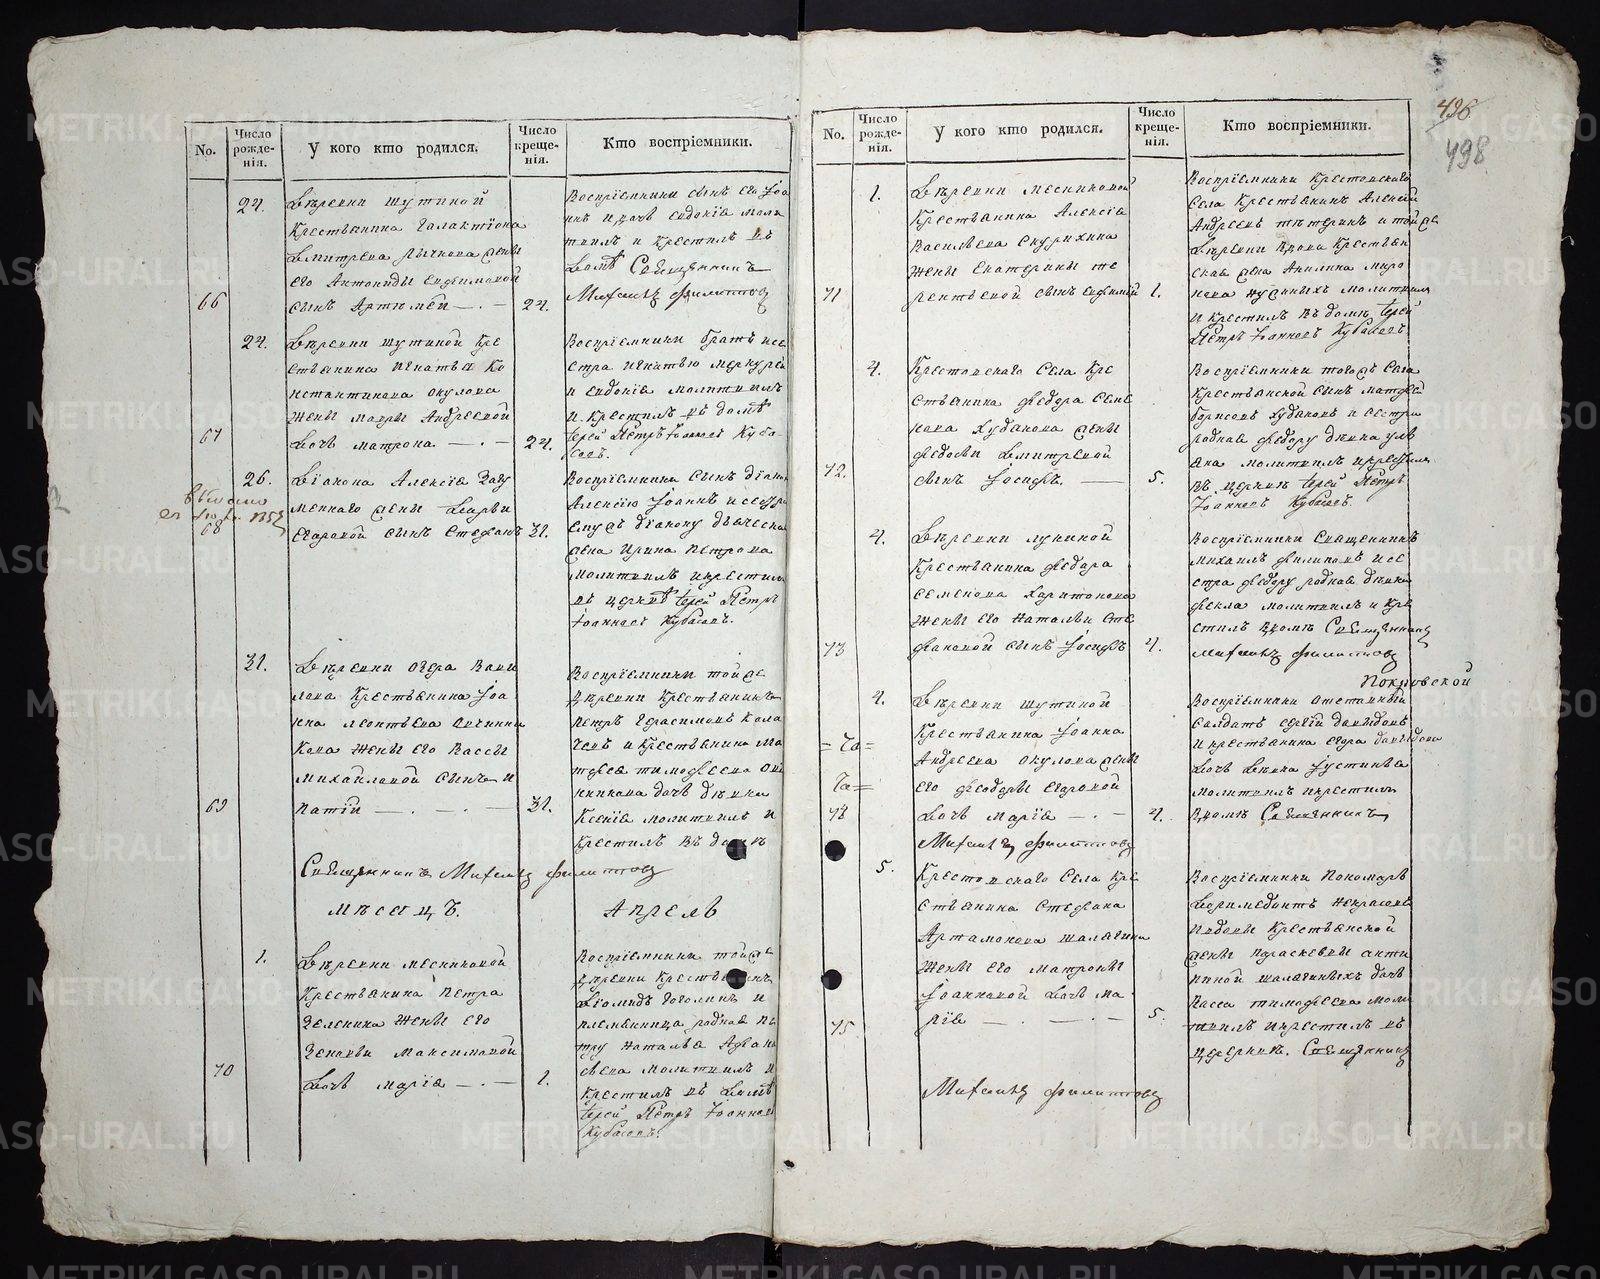 No.
Число рожде-нія.
У кого кто родился.
Число креще-нія.
Кто воспріемники.
24.
Деревни Шутиной
Крестьянина Галактіона
Дмитрева Лычкова жены
его Антониды Ендимовой
66
сынъ Артемей
24.
Воспріемники сынъ его Іоа
нъ и дочь Евдокіа моли
твилъ и крестилъ въ
домѣ Священникъ
Михаилъ Филиппов
24.
Деревни Шутиной Кре
стьянина Игнатьа Ко
нстантинова Окулова
жены Мавры Андреевой
67
дочь Матрона
24.
Воспріемники братъ и се
стра Игнатью Меркурей
и Евдокіа молитвилъ
и крестилъ въ домѣ
Іерей Петръ Іоанновъ Куба-
совъ.
26.
Діакона Алексѣа
жены Дарьи
68
Егоровой сынъ Стефанъ
31.
Воспріемники сынъ діакона
Алексію Іоаннъ и
ему жъ діакону дьяческа
жена Ирина Петрова
молитвилъ и крестилъ
въ церкви Іерей Петръ
Іоанновъ Кубасовъ.
31.
Деревни Озера Вави
лова Крестьянина Іоа
нна Леонтьева Овчинни
кова жены его Вассы
Михайловой сынъ И
69
патій
31.
Воспріемники той же
деревни Крестьянинъ
Петръ Герасимовъ Кола
чевъ и Крестьянина Ма
тфеа Тимофеева Ов
чинникова дочь дѣвка
Ксеніа молитвилъ и
крестилъ въ домѣ
Священникъ Михаилъ Филиппов
Мѣсяцъ. Апрель
1.
Деревни Месниковой
Крестьянина Петра
Зеленина жены его
Зеновьи Максимовой
70
дочь Маріа
1.
Воспріемники той же
деревни Крестьянинъ
Діомидъ Гоголинъ и
племянница родная Пе
тру Наталья Афана
сьева молитвилъ и
крестилъ въ домѣ
Іерей Петръ Іоанновъ
Кубасовъ.
496
498
No.
Число рожде-нія.
У кого кто родился.
Число креще-нія.
Кто воспріемники.
1.
Деревни Месниковой
Крестьянина Алексіа
Васильева Скурихина
жены Екатерины Те
71
рентьевой сынъ Евфимій
1.
Воспріемники Крестовскаго
села Крестьянинъ Алексій
Андреевъ Тетеринъ и той же
деревни вдова Крестьян
ская жена Акилина Миро
нова нужныхъ молитвилъ
и крестилъ въ домѣ Іерей
Петръ Іоанновъ Кубасовъ.
4.
Крестовскаго Села Кре
стьянина Федора Семе
нова Худакова жены
Федосьи Дмитревой
72.
сынъ Іосифъ.
5.
Воспріемники того жъ села
Крестьянской сынъ Матфей
Борисовъ Худаковъ и сестра
родная Федору дѣвка Уль
яна молитвилъ и крестилъ
въ церкви Іерей Петръ
Іоанновъ Кубасовъ.
4.
Деревни Луниной
Крестьянина Федора
Семенова Харитонова
жены его Натальи Сте
73
фановой сынъ Іосифъ
4.
Воспріемники Священникъ
Михаилъ Филиповъ и се
стра Федору родная дѣвка
Фекла молитвилъ и кре
стилъ в домѣ Священникъ
Михаилъ Филиппов
Покровской
4.
Деревни Шутиной
Крестьянина Іоанна
Андреева Окулова жены
его Феодоры Егоровой
74
дочь Маріа
4.
Воспріемники Отставный
солдатъ Сергій Давыдовъ
и крестьянина Егора Давыдова
дочь дѣвка Іустиньа
молитвилъ и крестилъ
в домѣ Священникъ
Михаилъ Филиппов
5.
Крестовскаго Села Кре
стьянина Стефана
Артамонова Шалагина
жены его Матроны
Іоанновой дочь Ма
75
ріа
5.
Воспріемники Пономарь
Доримедонтъ Некрасовъ
и вдовы Крестьянской
жены Параскевы Анти
пиной Шалагиныхъ дочь
Васса Тимофеева моли
твилъ и крестилъ въ
церкви. Священникъ
Михаилъ Филиппов